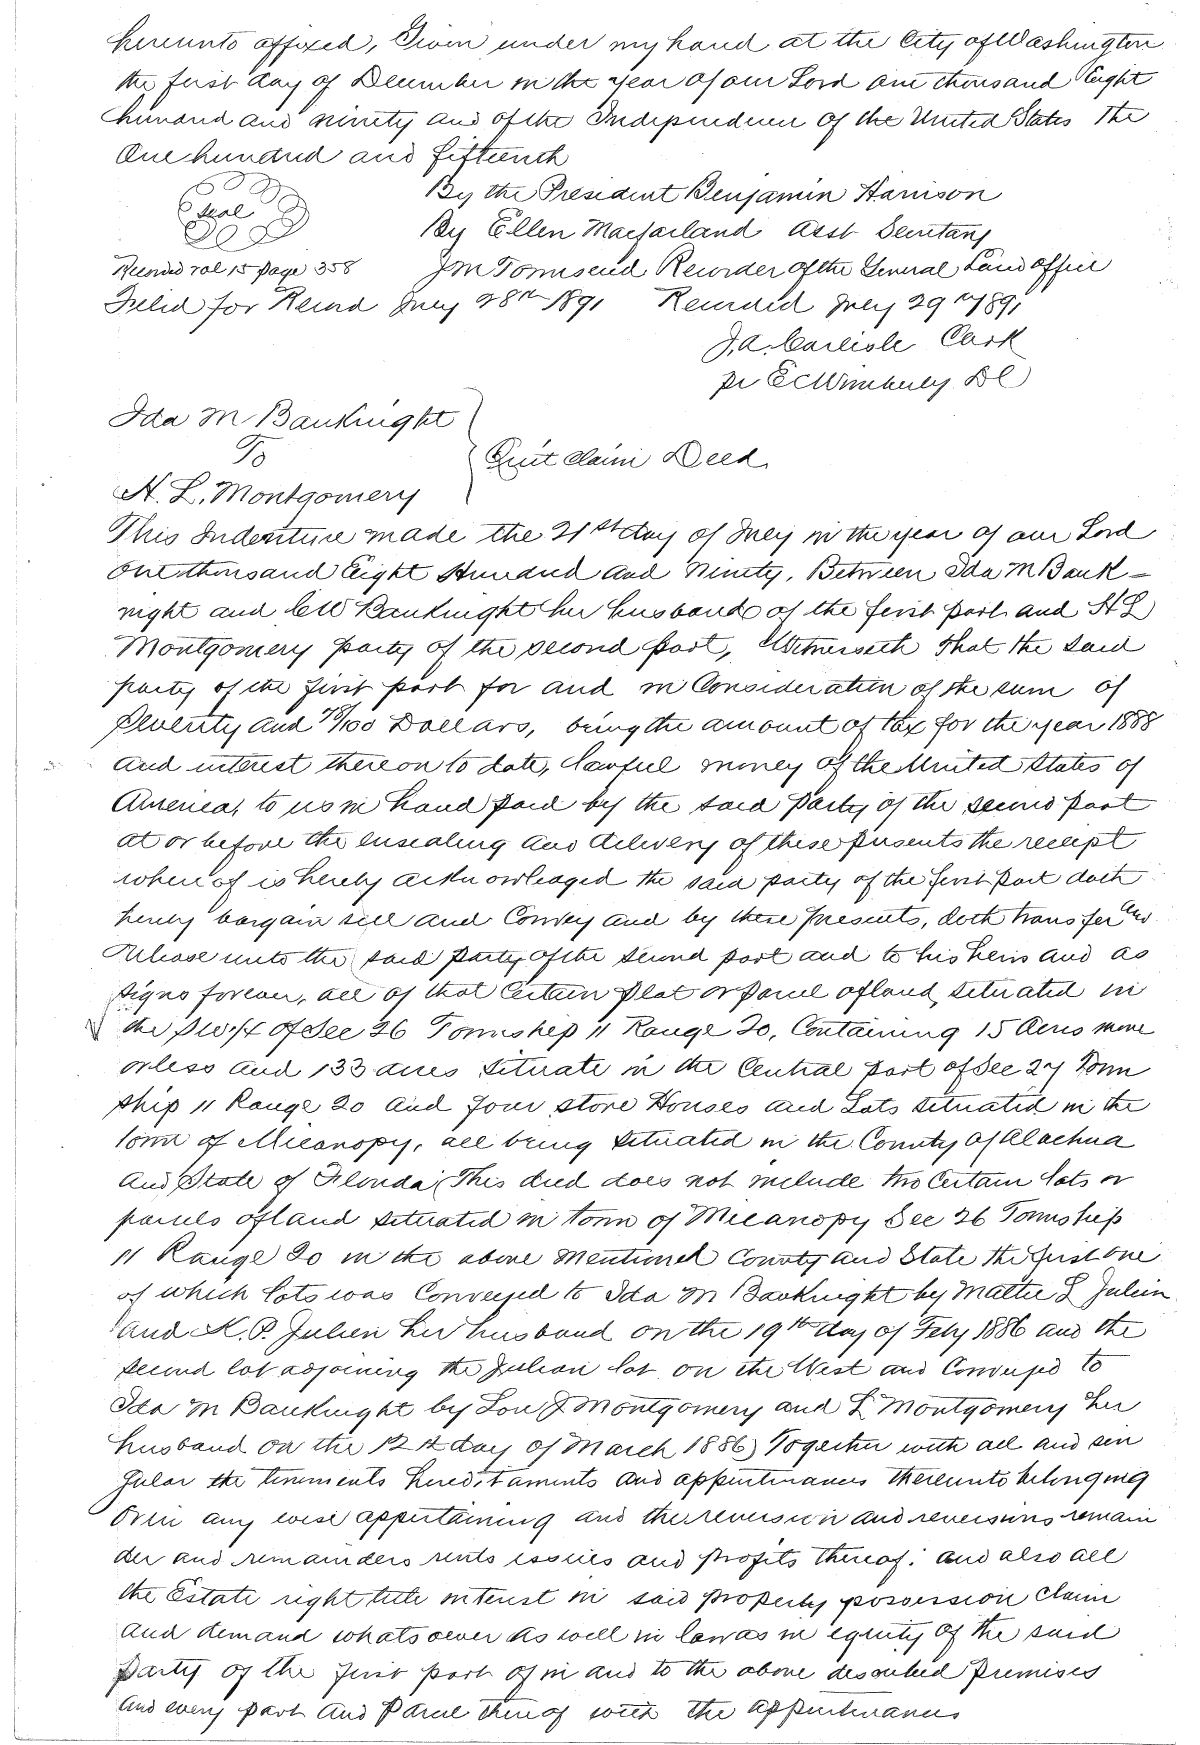 hereunto affixed, Given under my hand at the City of Washington
the first day of December in the year of our Lord one thousand Eight
hundred and ninety and of the Independence of the United States the
One hundred and fifteenth
By the President Benjamin Harrison
Seal
By Ellen Macfarland asst Secretary
Recorded vol 15 page 358 J M Townsend Recorder of the General Land office
Filed for Record July 28th 1891 Recorded July 29th 1891
J. A. Carlisle Clerk
pr E C Wimberly DC
Ida M Bauknight
To
Quit Claim Deed
H. L. Montgomery
This Indenture made the 21st day of July in the year of our Lord
One thousand Eight Hundred and Ninety, Between Ida M Bauk-
night and C W Bauknight her husband of the first part and H L
Montgomery party of the second part, Witnesseth that the said
party of the first part for and in Consideration of the sum of
Seventy and /100 Dollars, being the amount of tax for the year 1888
and interest thereon to date, lawful money of the United States of
America, to us in hand paid by the said Party of the second part
at or before the ensealing and delivery of these presents the receipt
where of is hereby acknowledged the said party of the first part doth
hereby bargain sell and Convey and by these presents, doth transfer and
release unto the said Party of the second part and to his heirs and as
signs forever, all of that Certain plat or parcel of land, situated in
the SW 1/4 of Sec 26 Township 11 Range 20, Containing 15 Acres more
or less and 133 acres situate in the Central part of Sec 27 Town
ship 11 Range 20 and four store Houses and Lots situated in the
town of Micanopy, all being situated in the County of Alachua
and State of Florida (This deed does not include two Certain lots or
parcels of land situated in town of Micanopy Sec 26 Township
11 Range 20 in the above mentioned County and State the first one
of which lots was Conveyed to Ida M Bauknight by Mattie L Julien
and K. P. Julien her husband on the 19th day of Feby 1886 and the
second lot adjoining the Julian lot on the West and Conveyed to
Ida M Bauknight by Lou J Montgomery and L Montgomery her
husband on the 12th day of March 1886) Together with all and sin
gular the tenements hereditaments and appurtenances thereunto belonging
or in any wise appertaining and the reversion and reversions remain
der and remainders rents issues and profits thereof: and also all
the Estate right title interest in said property possession claim
and demand whatsoever as well in law as in equity of the said
party of the first part of in and to the above described premises
and every part and parcel thereof with the appurtenances